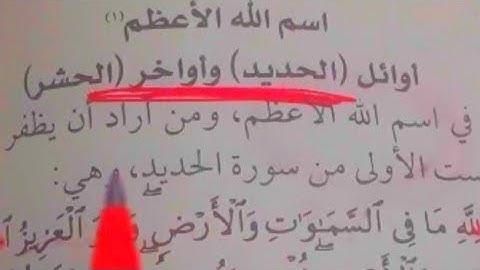 اسم الله الأعظم (١)
أوائل (الحديد) وأواخر (الحشر)
في اسم الله الأعظم، ومن أراد أن يظفر
ست الأولى من سورة الحديد، وهي:
لِلَّهِ مَا فِي ٱلسَّمَـٰوَٰتِ وَٱلْأَرْضِ وَهُوَ ٱلْعَزِيزُ